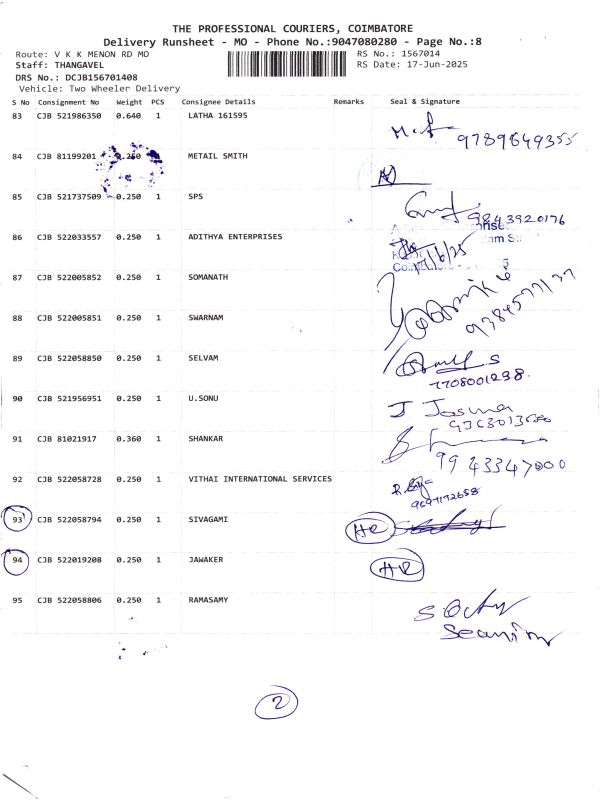 THE PROFESSIONAL COURIERS, COIMBATORE
Delivery Runsheet - MO - Phone No.:9047080280 - Page No.:8
Route: V K K MENON RD MO RS No.: 1567014
Staff: THANGAVEL RS Date: 17-Jun-2025
DRS No.: DCJB156701408
Vehicle: Two Wheeler Delivery
S No Consignment No Weight PCS Consignee Details Remarks Seal & Signature
83 CJB 521986350 0.640 1 LATHA 161595
9789649355
84 CJB 81199201 0.250 1 METAIL SMITH
85 CJB 521737509 0.250 1 SPS
9843920176
86 CJB 522033557 0.250 1 ADITHYA ENTERPRISES
87 CJB 522005852 0.250 1 SOMANATH
88 CJB 522005851 0.250 1 SWARNAM
89 CJB 522058850 0.250 1 SELVAM
7708001298.
90 CJB 521956951 0.250 1 U.SONU
J Josuna
91 CJB 81021917 0.360 1 SHANKAR
9943347000
92 CJB 522058728 0.250 1 VITHAI INTERNATIONAL SERVICES
93 CJB 522058794 0.250 1 SIVAGAMI
94 CJB 522019208 0.250 1 JAWAKER
95 CJB 522058806 0.250 1 RAMASAMY
2